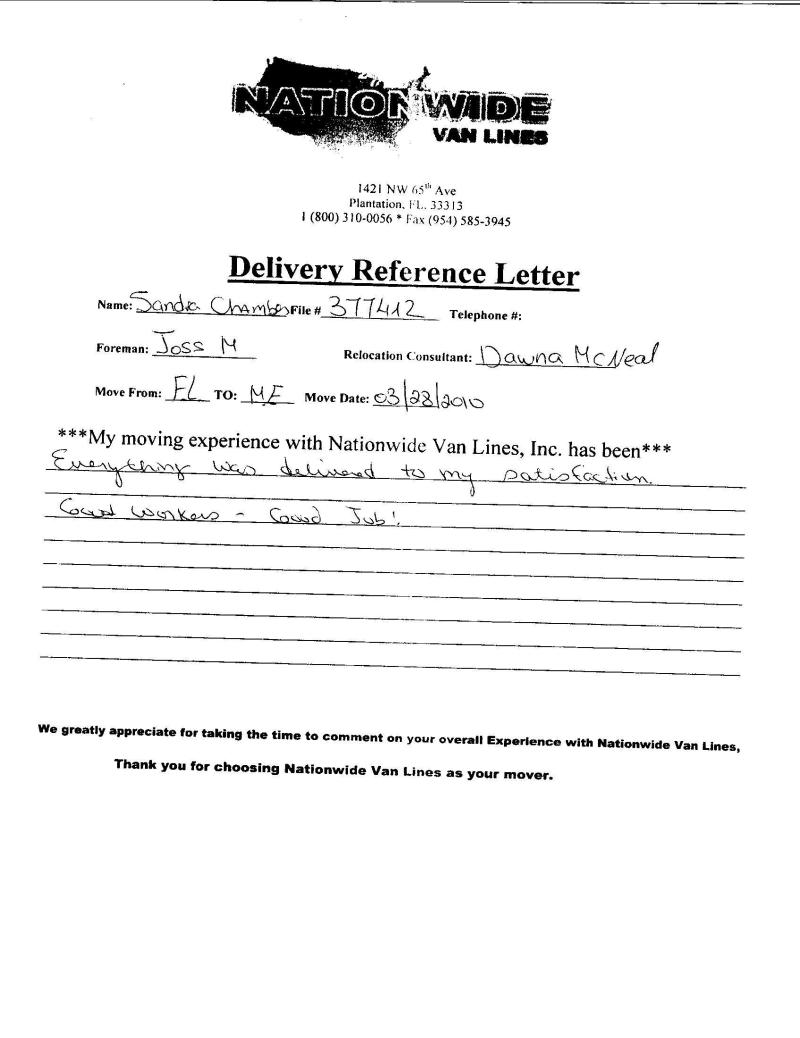 NATIONWIDE
VAN LINES
1421 NW 65th Ave
Plantation, FL. 33313
1 (800) 310-0056 * Fax (954) 585-3945
Delivery Reference Letter
Name: Sandra Chambers File # 377412 Telephone #:
Foreman: Joss M Relocation Consultant: Dawna McNeal
Move From: FL TO: ME Move Date: 03/28/2010
***My moving experience with Nationwide Van Lines, Inc. has been***
Everything was delivered to my satisfaction.
Good workers - Good Job!
We greatly appreciate for taking the time to comment on your overall Experience with Nationwide Van Lines,
Thank you for choosing Nationwide Van Lines as your mover.